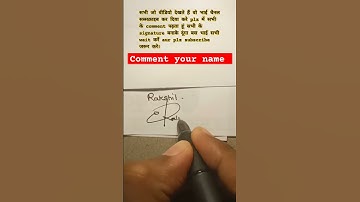 सभी जो वीडियो देखते हैं वो भाई चैनल
सब्सक्राइब कर दिया करे plz में सभी
के comment पढ़ता हूं सभी के
signature बनाके दूंगा बस भाई सभी
wait करें aur plz subscribe
जरूर करे।
Comment your name
Rakshil